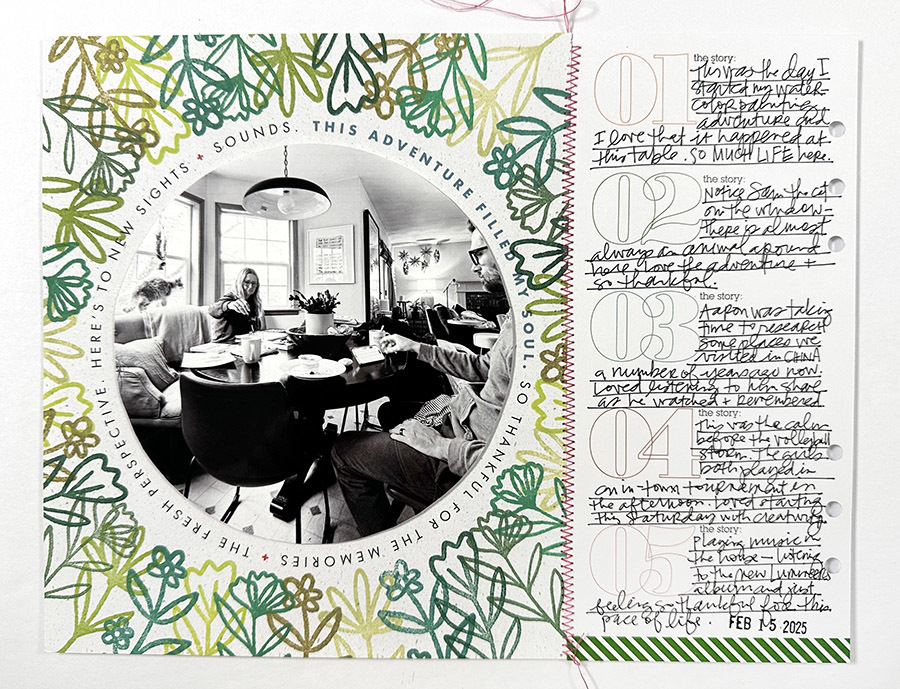 THIS ADVENTURE FILLED MY SOUL. SO THANKFUL FOR THE MEMORIES + THE FRESH PERSPECTIVE. HERE'S TO NEW SIGHTS + SOUNDS.
01
the story:
This was the day I
started my water-
color painting
adventure and
I love that it happened at
this table. SO MUCH LIFE here.
02
the story:
Notice Sam the cat
on the window-
there is almost
always an animal around
here. Love the adventure +
so thankful.
03
the story:
Aaron was taking
time to research
some places we
visited in CHINA
a number of years ago now.
Loved listening to him share
as he watched + remembered
04
the story:
This was the calm
before the volleyball
storm. The girls
both played in
an in-town tournament in
the afternoon. Loved starting
this Saturday with creativity.
05
the story:
Playing music in
the house - listening
to the new Lumineers
album and just
feeling so thankful for this
pace of life. FEB 15 2025